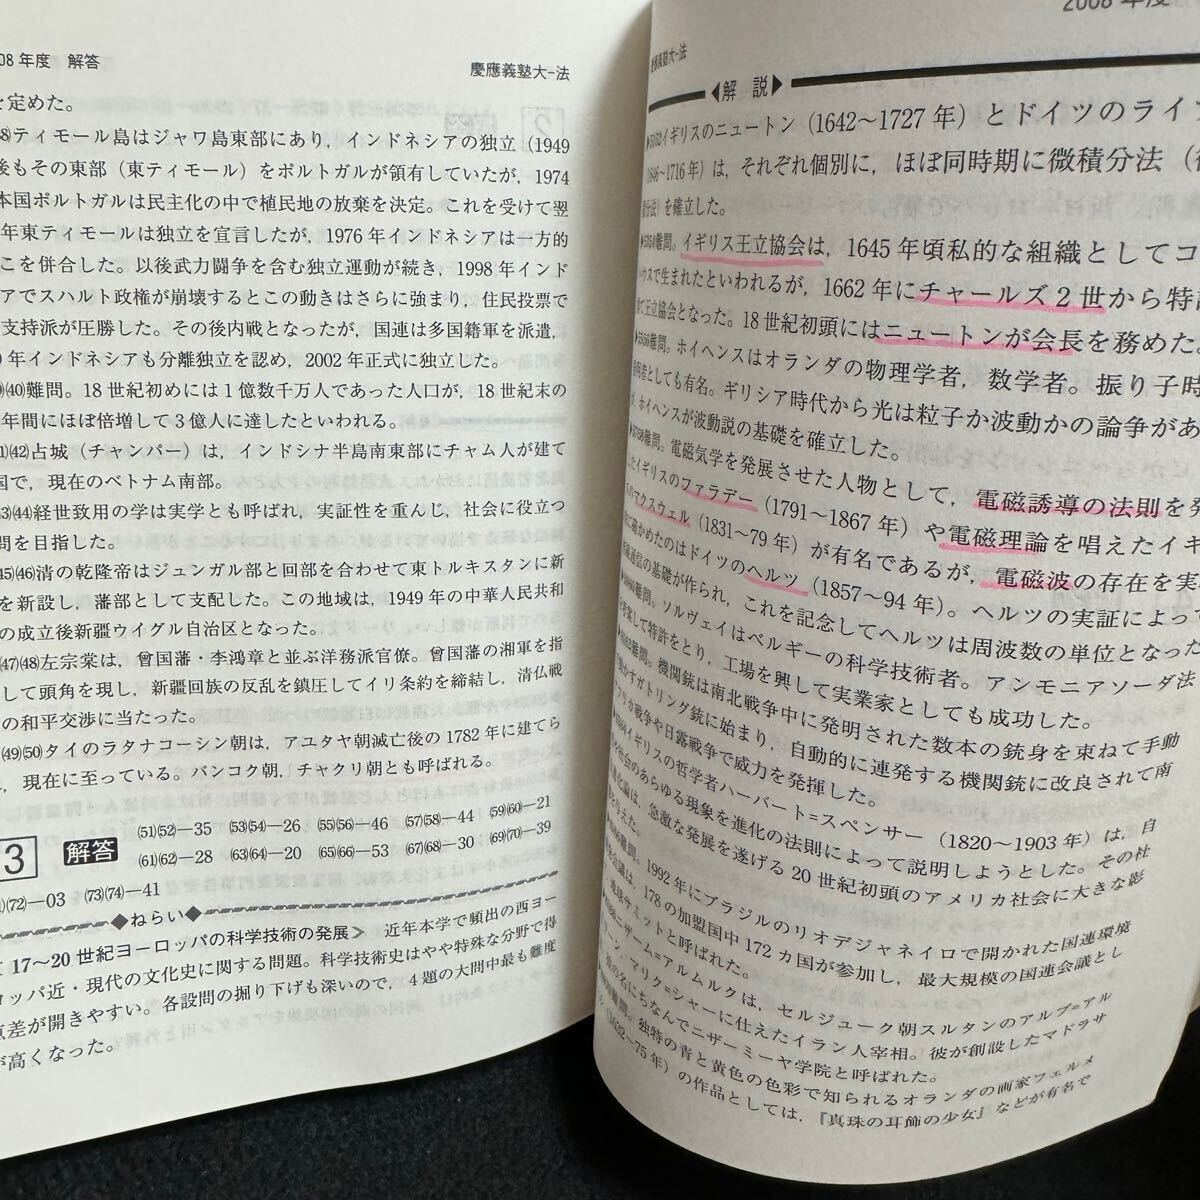 08年度 解答
慶應義塾大-法
を定めた。
8)ティモール島はジャワ島東部にあり，インドネシアの独立（1949
後もその東部（東ティモール）をポルトガルが領有していたが，1974
本国ポルトガルは民主化の中で植民地の放棄を決定。これを受けて翌
年東ティモールは独立を宣言したが，1976年インドネシアは一方的
こを併合した。以後武力闘争を含む独立運動が続き，1998年インド
アでスハルト政権が崩壊するとこの動きはさらに強まり，住民投票で
支持派が圧勝した。その後内戦となったが，国連は多国籍軍を派遣，
9年インドネシアも分離独立を認め，2002年正式に独立した。
9)(40)難問。18世紀初めには1億数千万人であった人口が，18世紀末の
年間にほぼ倍増して3億人に達したといわれる。
1)(42)占城（チャンパー）は，インドシナ半島南東部にチャム人が建て
国で，現在のベトナム南部。
43)(44)経世致用の学は実学とも呼ばれ，実証性を重んじ，社会に役立つ
問を目指した。
45)(46)清の乾隆帝はジュンガル部と回部を合わせて東トルキスタンに新
を新設し，藩部として支配した。この地域は，1949年の中華人民共和
の成立後新疆ウイグル自治区となった。
(47)(48)左宗棠は，曾国藩・李鴻章と並ぶ洋務派官僚。曾国藩の湘軍を指
して頭角を現し，新疆回族の反乱を鎮圧してイリ条約を締結し，清仏戦
の和平交渉に当たった。
(49)(50)タイのラタナコーシン朝は，アユタヤ朝滅亡後の1782年に建てら
，現在に至っている。バンコク朝，チャクリ朝とも呼ばれる。
3 解答 (51)(52)―35 (53)(54)―26 (55)(56)―46 (57)(58)―44 (59)(60)―21
(61)(62)―28 (63)(64)―20 (65)(66)―53 (67)(68)―30 (69)(70)―39
(72)―03 (73)(74)―41
◆ねらい◆
17～20世紀ヨーロッパの科学技術の発展≫ 近年本学で頻出の西ヨー
ロッパ近・現代の文化史に関する問題。科学技術史はやや特殊な分野で得
点差が開きやすい。各設問の掘り下げも深いので，4題の大問中最も難度
が高くなった。
2008年度
慶應義塾大-法
◀解 説▶
イギリスのニュートン（1642～1727年）とドイツのライ
（1646～1716年）は，それぞれ個別に，ほぼ同時期に微積分法（
積分法）を確立した。
難問。イギリス王立協会は，1645年頃私的な組織としてコ
ハウスで生まれたといわれるが，1662年にチャールズ2世から特許
王立協会となった。18世紀初頭にはニュートンが会長を務めた。
難問。ホイヘンスはオランダの物理学者，数学者。振り子時
者としても有名。ギリシア時代から光は粒子か波動かの論争があ
ホイヘンスが波動説の基礎を確立した。
難問。電磁気学を発展させた人物として，電磁誘導の法則を発
したイギリスのファラデー（1791～1867年）や電磁理論を唱えたイギ
のマクスウェル（1831～79年）が有名であるが，電磁波の存在を実
に確かめたのはドイツのヘルツ（1857～94年）。ヘルツの実証によって
通信の基礎が作られ，これを記念してヘルツは周波数の単位となった
難問。ソルヴェイはベルギーの科学技術者。アンモニアソーダ法
案して特許をとり，工場を興して実業家としても成功した。
難問。機関銃は南北戦争中に発明された数本の銃身を束ねて手動
かすガトリング銃に始まり，自動的に連発する機関銃に改良されて南
フリカ戦争や日露戦争で威力を発揮した。
イギリスの哲学者ハーバート=スペンサー（1820～1903年）は，自
や社会のあらゆる現象を進化の法則によって説明しようとした。その社
進化論は，急激な発展を遂げる20世紀初頭のアメリカ社会に大きな影
を与えた。
難問。1992年にブラジルのリオデジャネイロで開かれた国連環境
会議は，178の加盟国中172カ国が参加し，最大規模の国連会議とし
地球サミットと呼ばれた。
ニザーム=アルムルクは，セルジューク朝スルタンのアルプ=アル
ーン，マリク=シャーに仕えたイラン人宰相。彼が創設したマドラサ
彼の名にちなんでニザーミーヤ学院と呼ばれた。
難問。独特の青と黄色の色彩で知られるオランダの画家フェルメ
（1632～75年）の作品としては，『真珠の耳飾の少女』などが有名で